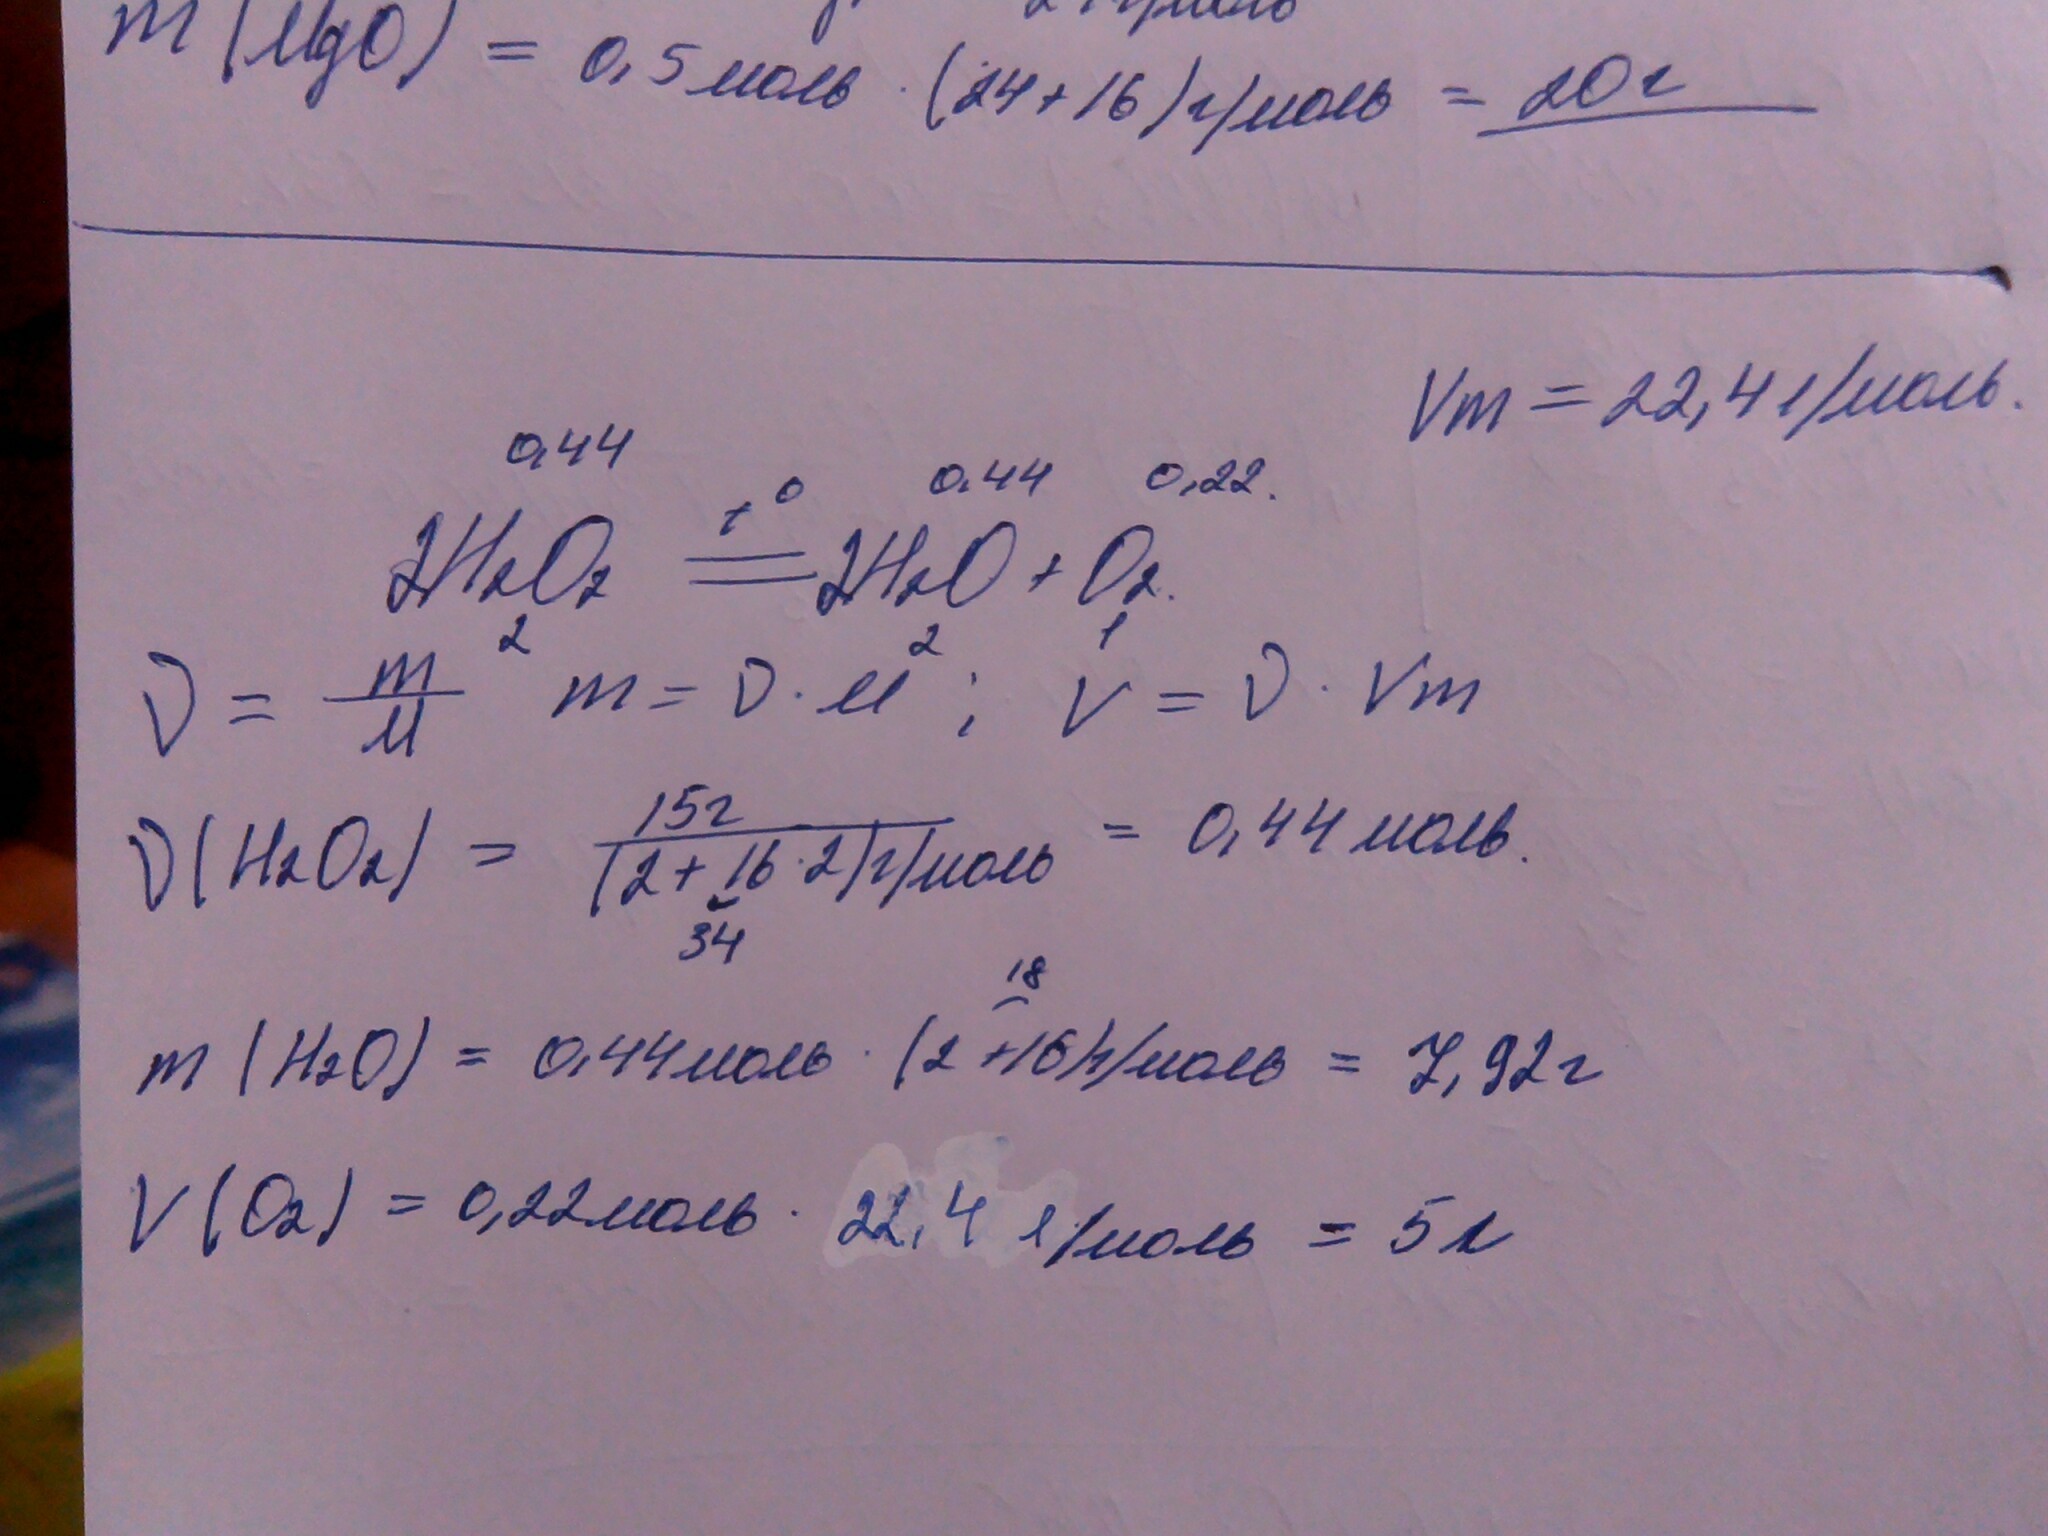 m(MgO) = 0,5моль · (24+16)г/моль = 20г
Vm = 22,4 л/моль.
0,44 0,44 0,22.
2H₂O₂ =t°= 2H₂O + O₂.
2 2 1
ν = m/M m = ν · M ; V = ν · Vm
ν(H₂O₂) = 15г/(2+16·2)г/моль = 0,44 моль.
34
18
m(H₂O) = 0,44моль · (2+16)г/моль = 7,92г
V(O₂) = 0,22моль · 22,4 л/моль = 5л